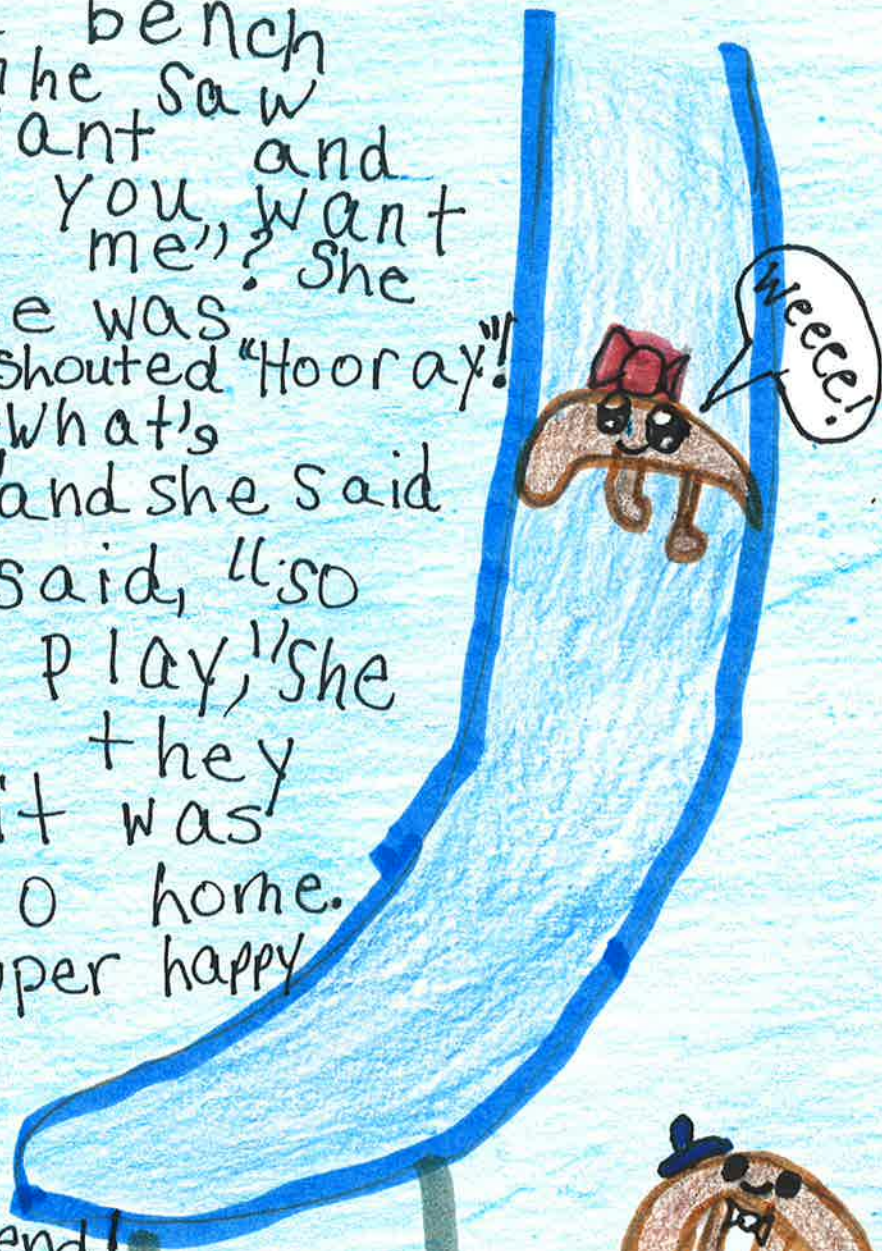 bench
he saw
ant and
you want
me"? She
e was
shouted "Hooray"!
What's
and she said
said, "so
play," she
they
it was
o home.
per happy
end!
Weeee!